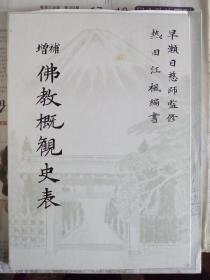 早瀬日慈師監修
熱田江楓編書
増補
佛教概観史表